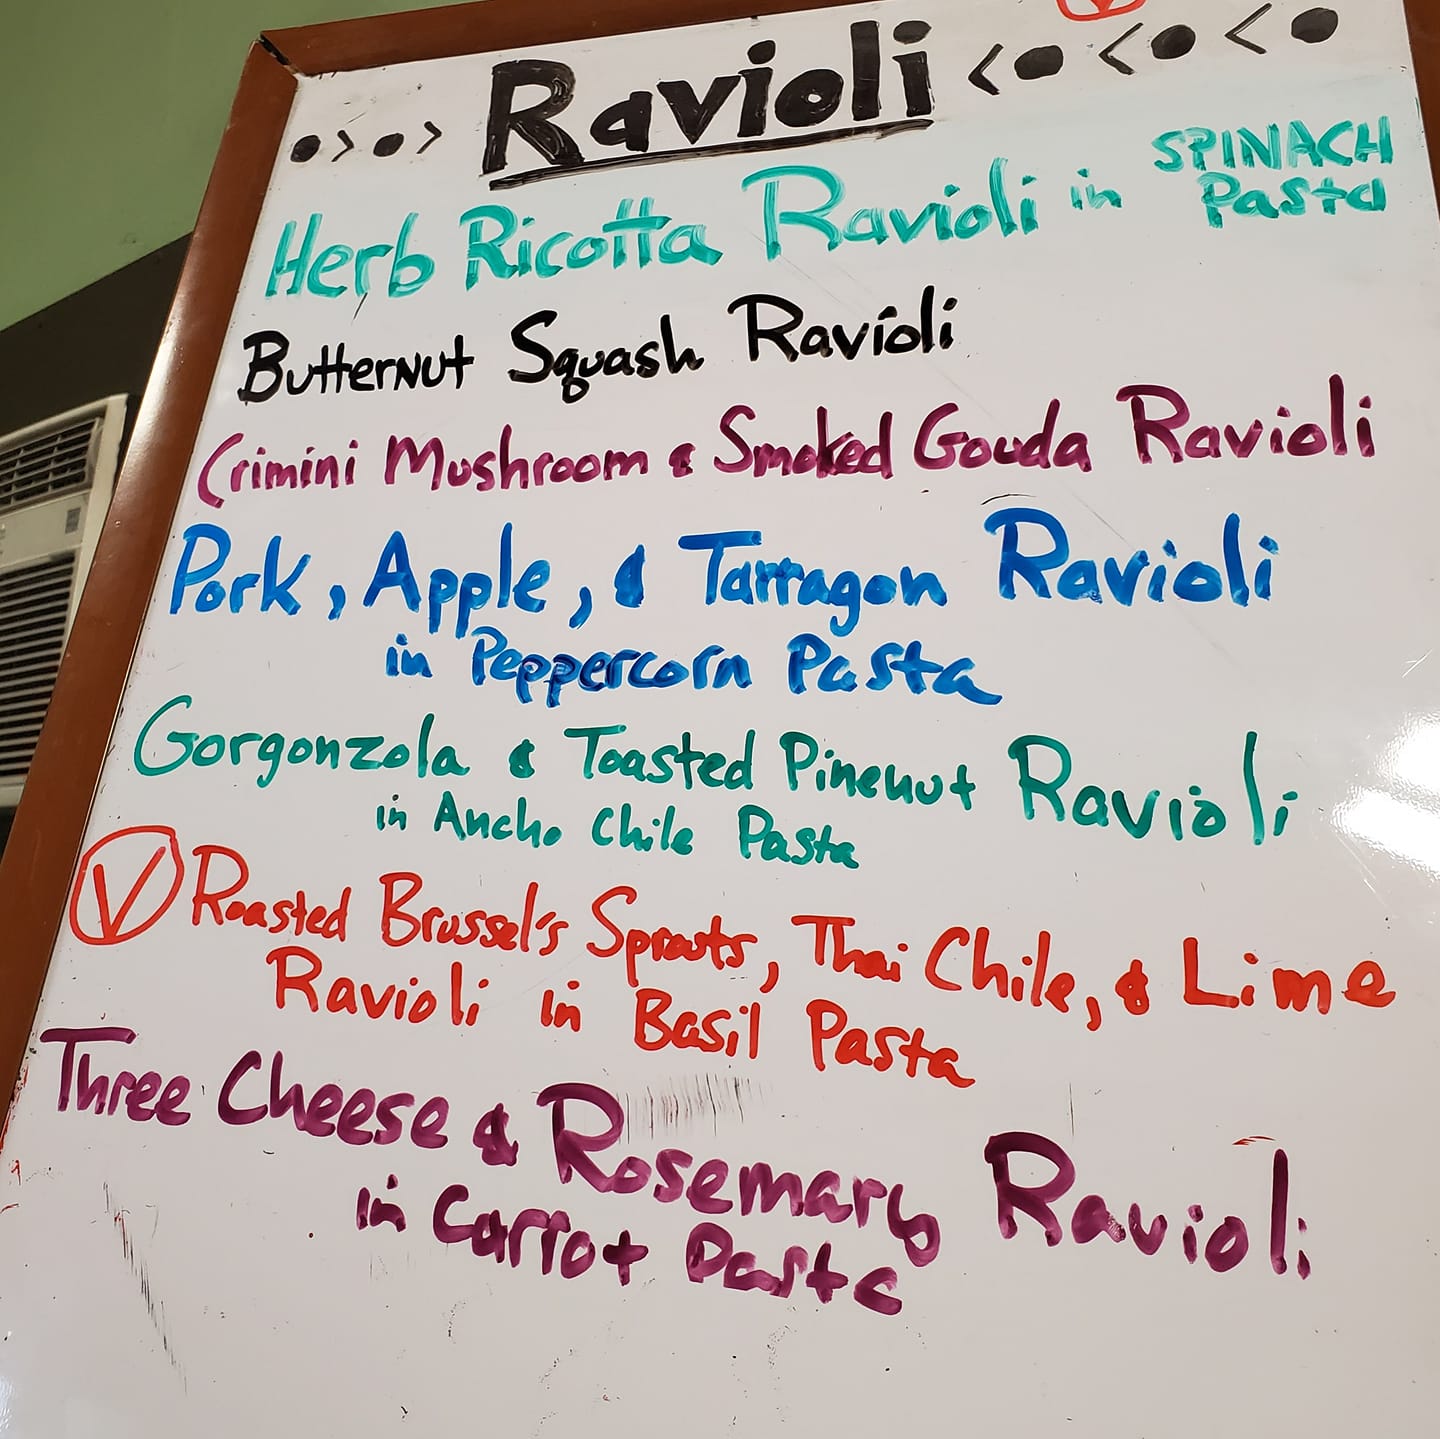 Ravioli
Herb Ricotta Ravioli in SPINACH Pasta
Butternut Squash Ravioli
Crimini Mushroom & Smoked Gouda Ravioli
Pork, Apple, & Tarragon Ravioli
in Peppercorn Pasta
Gorgonzola & Toasted Pinenut Ravioli
in Ancho Chile Pasta
V Roasted Brussel's Sprouts, Thai Chile, & Lime
Ravioli in Basil Pasta
Three Cheese & Rosemary Ravioli
in Carrot Pasta